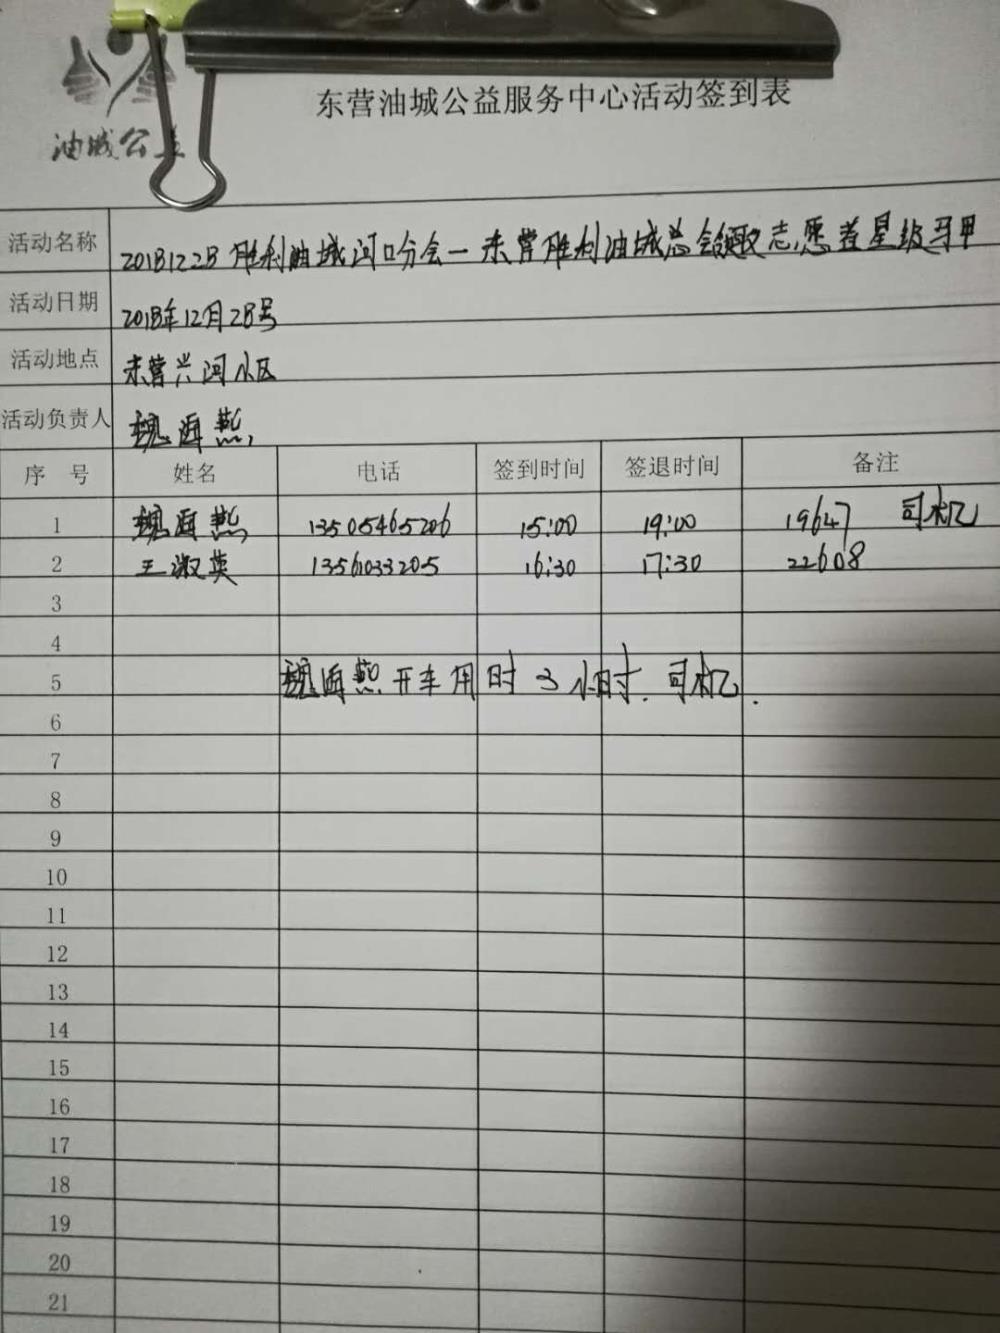 油城公益
东营油城公益服务中心活动签到表
活动名称 20181228胜利油城河口分会—东营胜利油城总会领取志愿者星级马甲
活动日期 2018年12月28号
活动地点 东营兴河小区
活动负责人 魏海燕
序号 姓名 电话 签到时间 签退时间 备注
1 魏海燕 13505465206 15:00 19:00 19647 司机
2 王淑英 13561033205 16:30 17:30 22608
3
4
5 魏海燕开车用时3小时.司机.
6
7
8
9
10
11
12
13
14
15
16
17
18
19
20
21